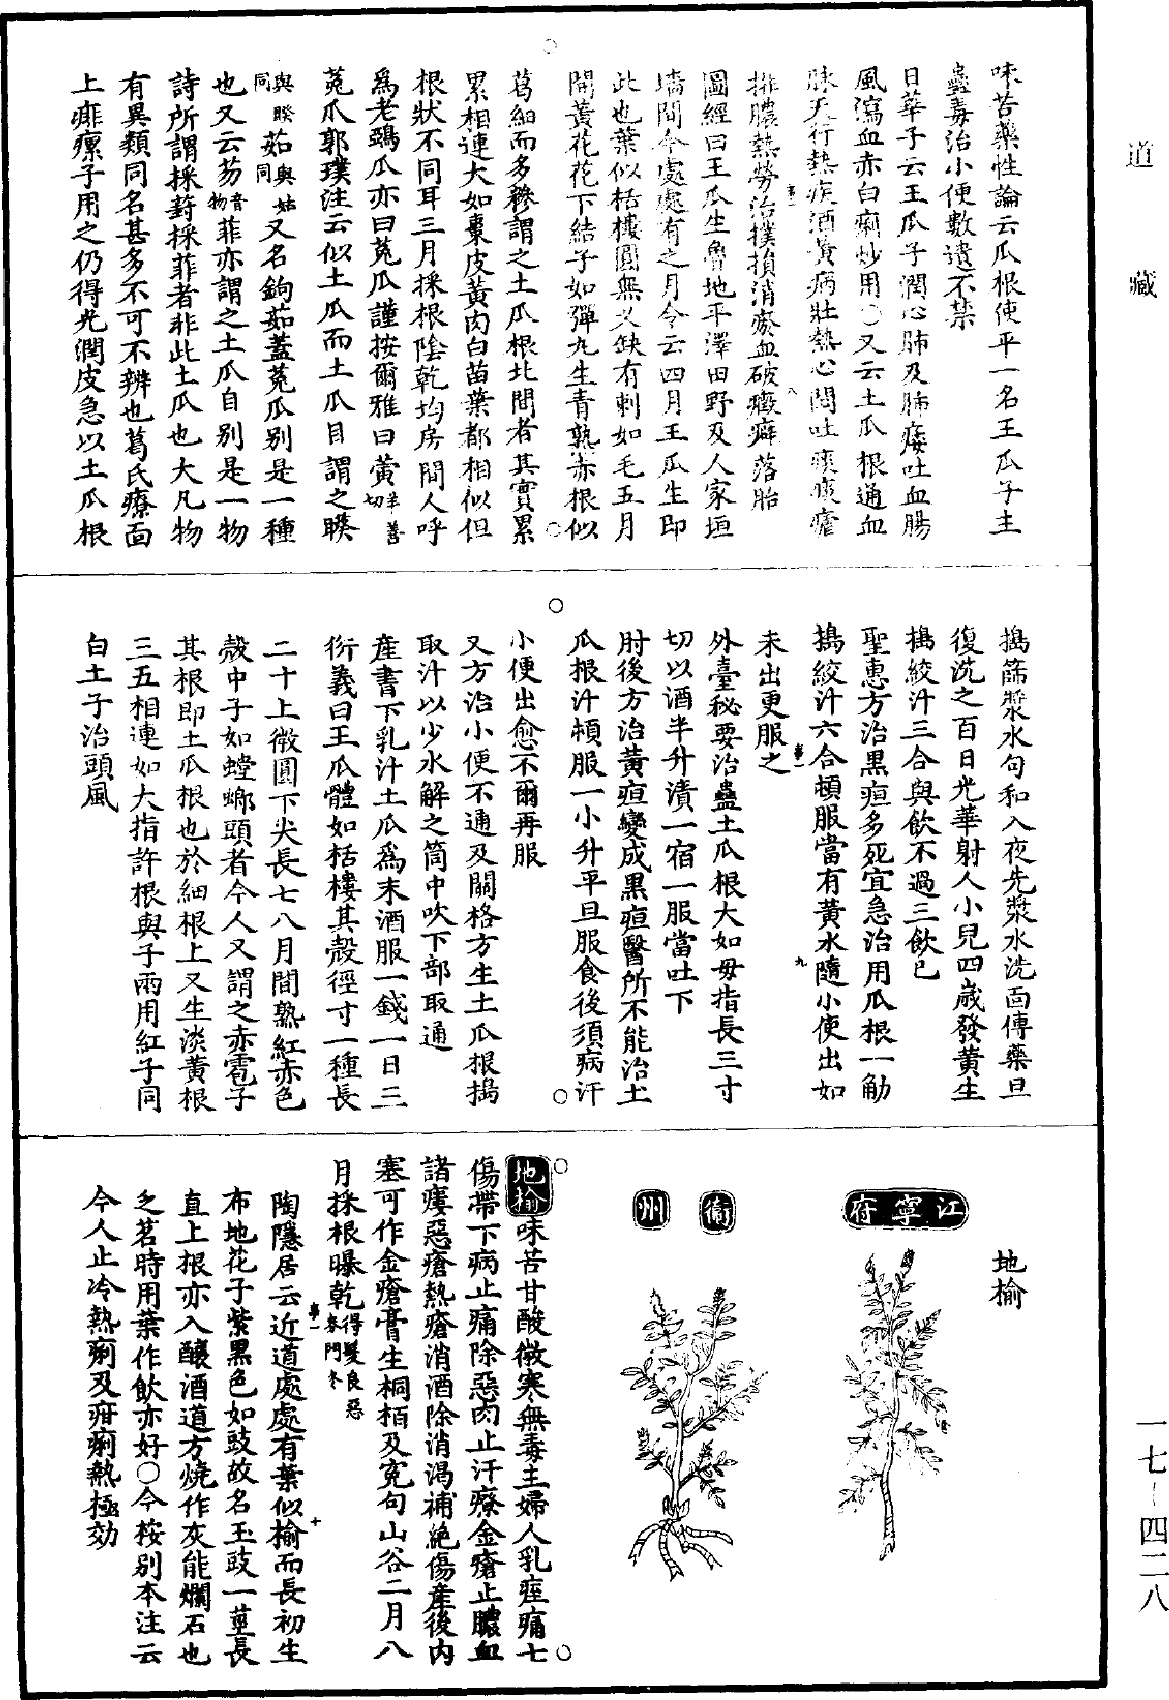 道藏
味苦藥性論云瓜根使平一名王瓜子主
蠱毒治小便數遺不禁
日華子云王瓜子潤心肺及肺痿吐血腸
風瀉血赤白痢炒用○又云土瓜根通血
脉天行熱疾酒黃病壯熱心悶吐痰痰瘧
排膿熱勞治撲損消瘀血破癥癖落胎
圖經曰王瓜生魯地平澤田野及人家垣
墻間今處處有之月令云四月王瓜生即
此也葉似栝樓圓無叉缺有刺如毛五月
開黃花花下結子如彈丸生青熟赤根似
葛細而多糝謂之土瓜根北間者其實累
累相連大如棗皮黃肉白苗葉都相似但
根狀不同耳三月採根陰乾均房間人呼
爲老鵶瓜亦曰菟瓜謹按爾雅曰黃羊善切
菟瓜郭璞注云似土瓜而土瓜目謂之䁬
與䁬同茹與姑同又名鉤茹蓋菟瓜别是一種
也又云芴音物菲亦謂之土瓜自别是一物
詩所謂採葑採菲者非此土瓜也大凡物
有異類同名甚多不可不辨也葛氏療面
上疿瘰子用之仍得光潤皮急以土瓜根
搗篩漿水勻和入夜先漿水洗面傅藥旦
復洗之百日光華射人小兒四歲發黃生
搗絞汁三合與飲不過三飲已
聖惠方治黑疸多死宜急治用瓜根一觔
搗絞汁六合頓服當有黃水隨小便出如
未出更服之
外臺秘要治蠱土瓜根大如毋指長三寸
切以酒半升漬一宿一服當吐下
肘後方治黃疸變成黑疸醫所不能治土
瓜根汁頓服一小升平旦服食後須病汗
小便出愈不爾再服
又方治小便不通及關格方生土瓜根搗
取汁以少水解之筒中吹下部取通
産書下乳汁土瓜爲末酒服一錢一日三
衍義曰王瓜體如栝樓其殼徑寸一種長
二十上微圓下尖長七八月間熟紅赤色
殼中子如螳螂頭者今人又謂之赤雹子
其根即土瓜根也於細根上又生淡黃根
三五相連如大指許根與子兩用紅子同
白土子治頭風
地榆
江寧府
衞州
地榆味苦甘酸微寒無毒主婦人乳痓痛七
傷帶下病止痛除惡肉止汗療金瘡止膿血
諸瘻惡瘡熱瘡消酒除消渴補絶傷産後内
塞可作金瘡膏生桐栢及寃句山谷二月八
月採根曝乾得髮良惡麥門冬
陶隱居云近道處處有葉似榆而長初生
布地花子紫黑色如豉故名玉豉一莖長
直上根亦入釀酒道方燒作灰能爛石也
之茗時用葉作飲亦好○今桉别本注云
今人止冷熱痢及疳痢熱極効
一七—四二八